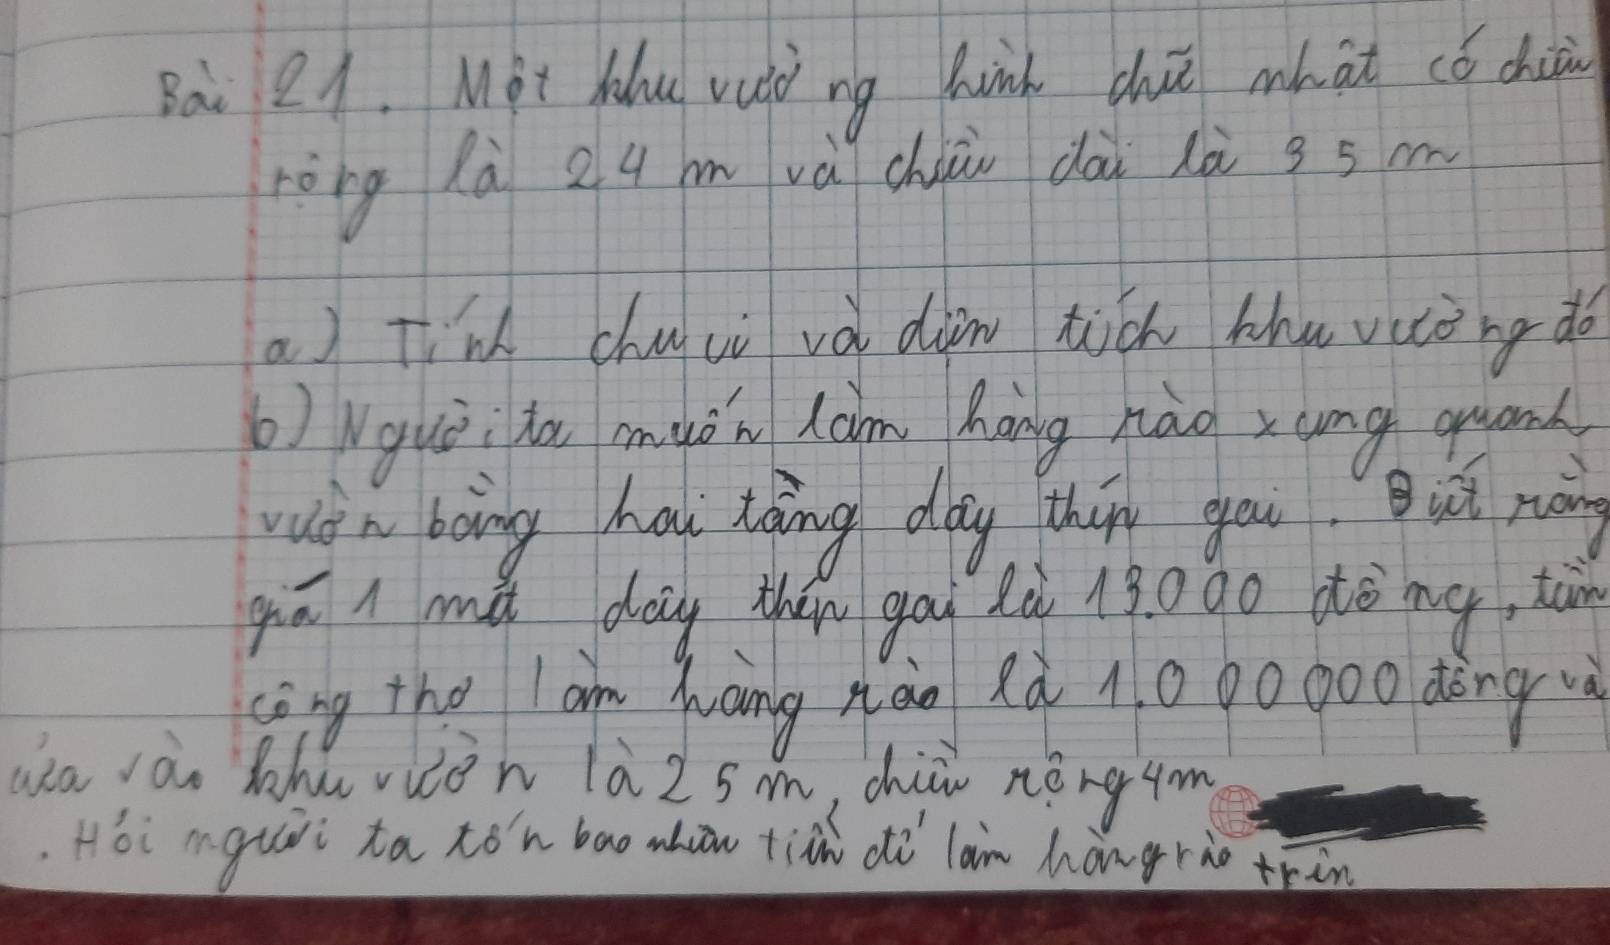 Bài 21. Một khu vườ ng hình chữ nhật có chiều
rộng là 24 m và chiều dài là 35 m
a) Tính chu vi và diện tích khu vườ ng đó
b) Người ta muốn làm hàng rào xung quanh
vườn bằng hai tầng dây thép gai. Biết rằng
giá 1 mét dây thép gai là 13.000 đồng, tiền
công thợ làm hàng rào là 1.000000 đồng và
cửa vào khu vườn là 25 m, chiều rộng 4m
. Hỏi người ta tốn bao nhiêu tiền để làm hàng rào trên